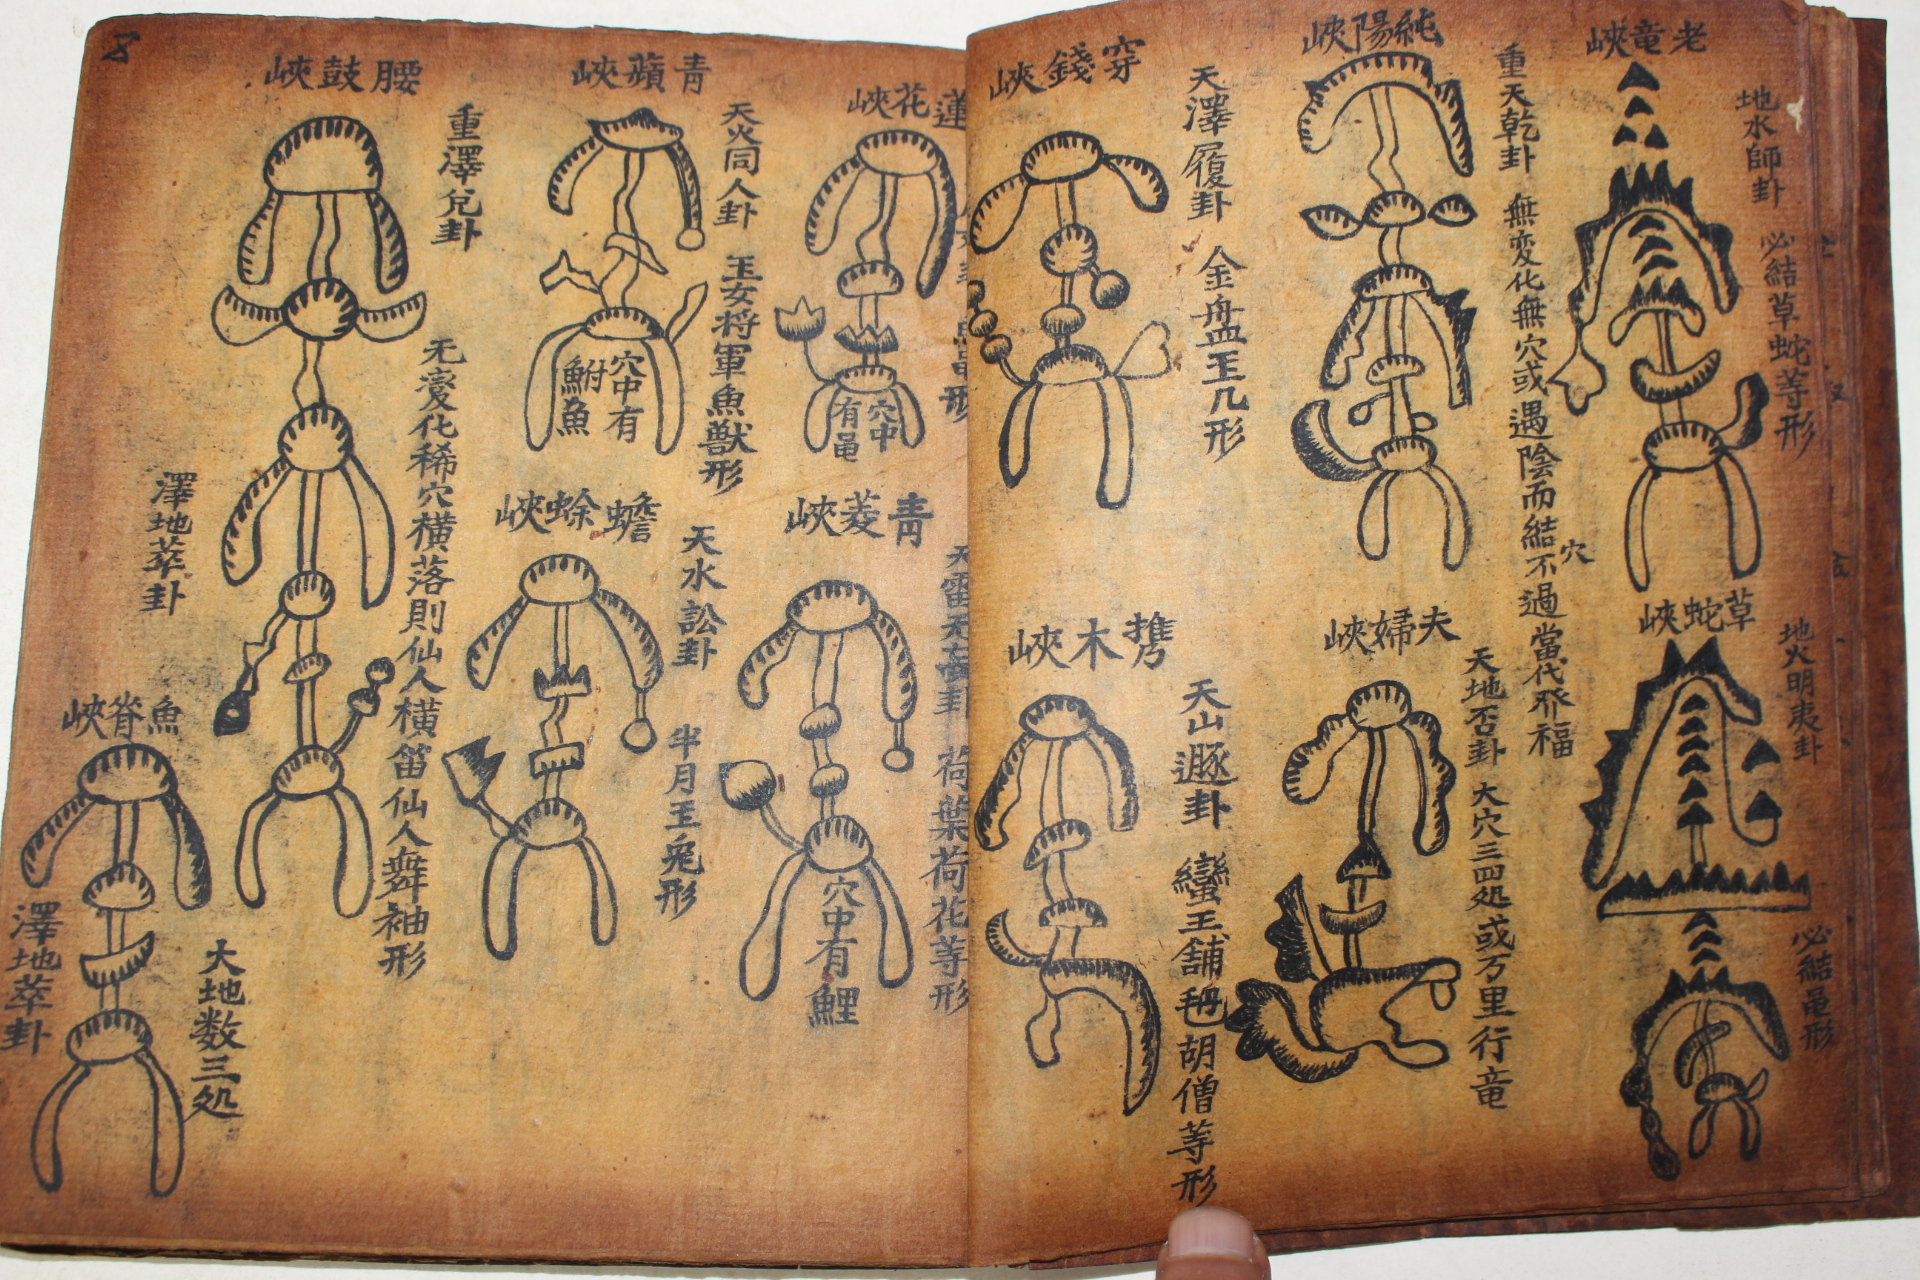 老竜峽
地水師卦 必結草蛇等形
草蛇峽
地火明夷卦
必結黽形
純陽峽
重天乾卦 無変化無穴或遇陰而結穴不過當代発福
夫婦峽
天地否卦 大穴三四処或万里行竜
穿錢峽
天澤履卦 金盤玉几形
携木峽
天山遯卦 蠻王舖毡胡僧等形
蓮花峽
穴中有黽
青菱峽
天雷无妄卦 荷葉荷花等形
穴中有鯉
青蘋峽
天火同人卦 玉女将軍魚獣形
穴中有鮒魚
蟾蜍峽
天水訟卦 半月玉兎形
腰鼓峽
重澤兌卦
无変化稀穴橫落則仙人橫笛仙人舞袖形
澤地萃卦
魚脊峽
大地数三処
澤地萃卦